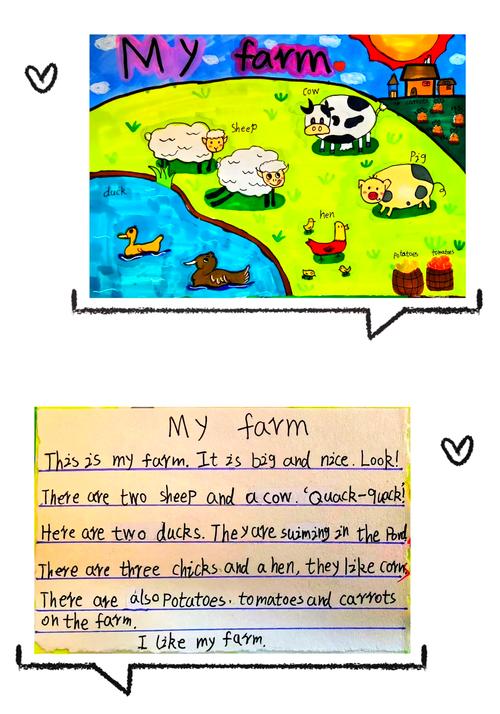 My farm.
cow
carrots
sheep
Pig
duck
hen
potatoes
tomatoes
My farm
This is my farm. It is big and nice. Look!
There are two sheep and a cow. "Quack-quack!
Here are two ducks. They are suiming in the Pond
There are three chicks and a hen, they like corns
There are also Potatoes. tomatoes and carrots
on the farm.
I like my farm.